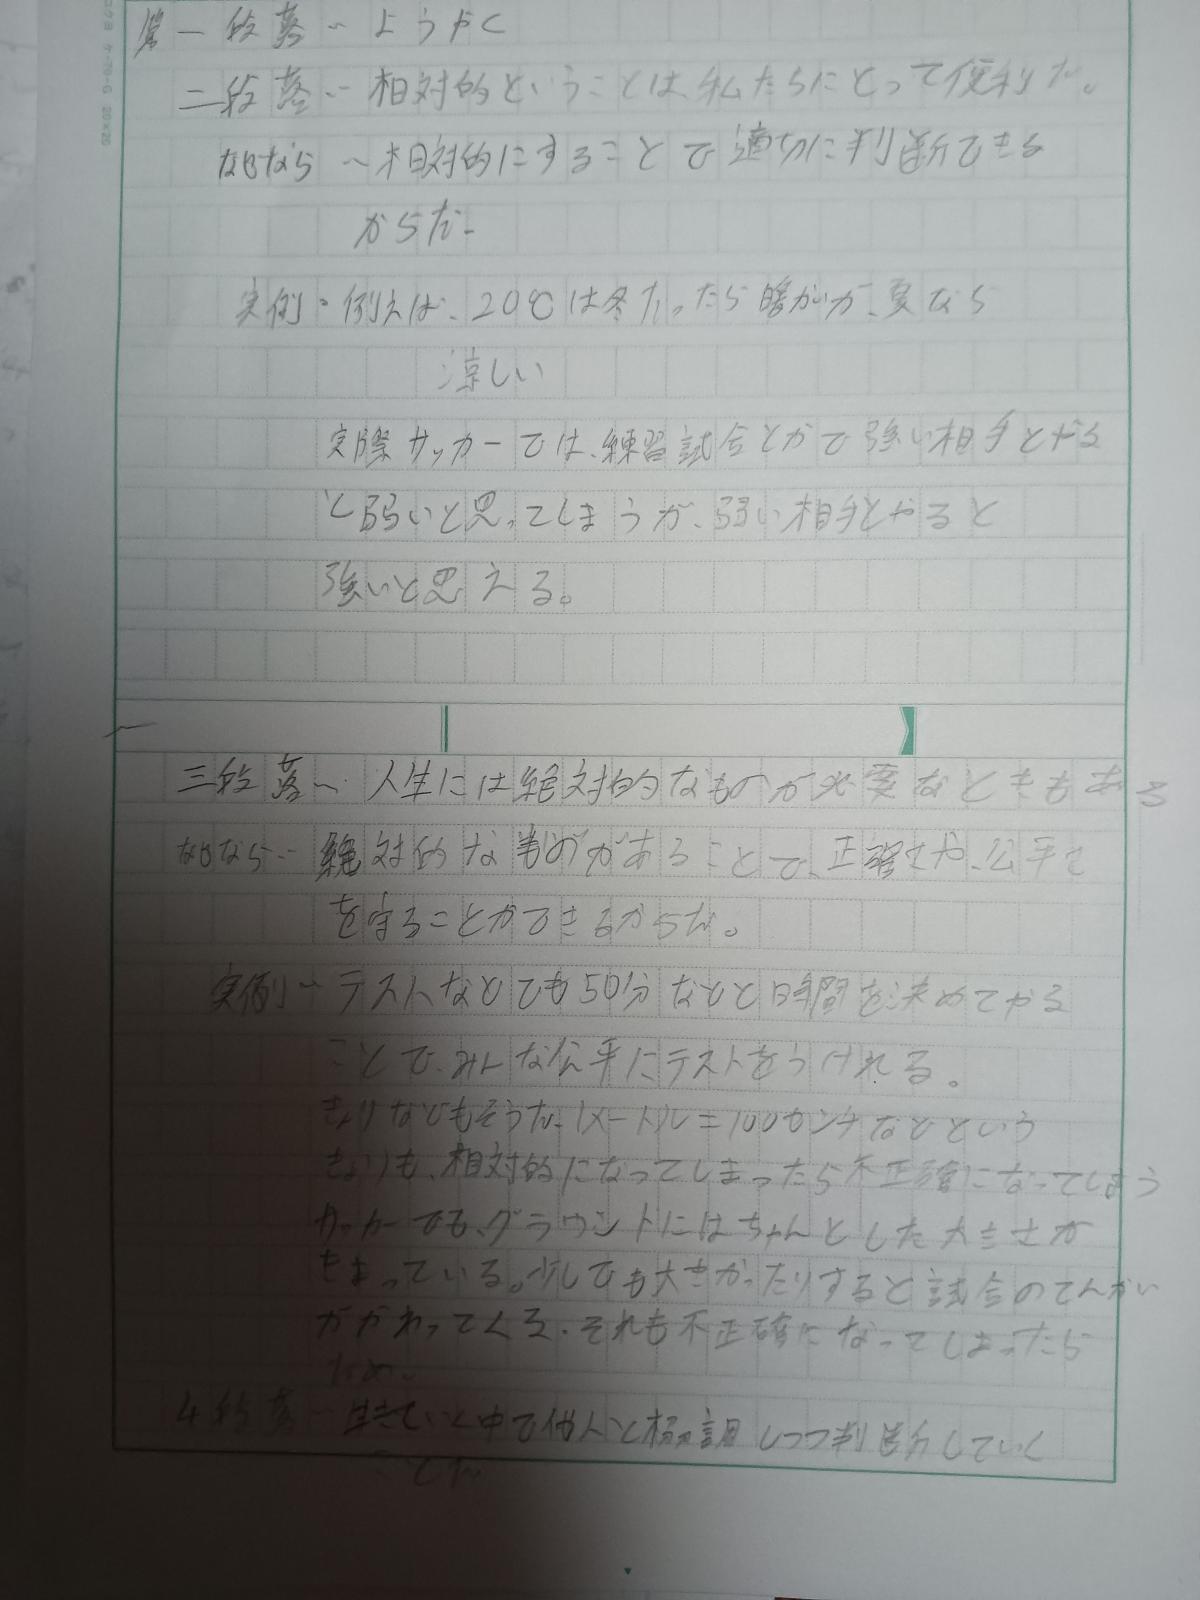 第一段落～ようやく
二段落～相対的ということは私たちにとって便利だ。
なぜなら～相対的にすることで適切に判断できる
からだ。
実例・例えば、20℃は冬だったら暖かいが、夏なら
涼しい
実際サッカーでは、練習試合とかで強い相手とやる
と弱いと思ってしまうが、弱い相手とやると
強いと思える。
三段落～人生には絶対的なものが必要なときもある
なぜなら～絶対的なものがあることで、正確さや、公平さ
を守ることができるからだ。
実例～テストなどでも50分などと時間を決めてやる
ことで、みんな公平にテストをうけれる。
きょりなどもそうだ。1メートル=100センチなどという
きょりも、相対的になってしまったら不正確になってしまう
サッカーでも、グラウンドにはちゃんとした大きさが
きまっている。少しでも大きかったりすると試合のてんかい
がかわってくる。それも不正確になってしまったら
だめ。
4段落～生きていく中で他人と協調しつつ判断していく
ことだ
コクヨ ケ-70-G 20×20